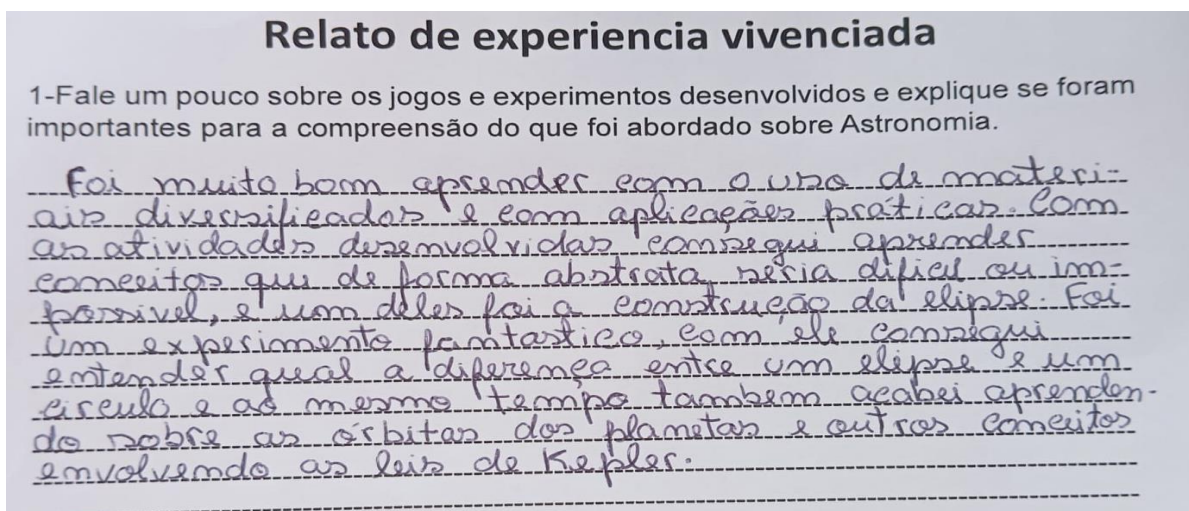 Relato de experiencia vivenciada
1-Fale um pouco sobre os jogos e experimentos desenvolvidos e explique se foram
importantes para a compreensão do que foi abordado sobre Astronomia.
Foi muito bom aprender com o uso de materi-
ais diversificados e com aplicações práticas. Com
as atividades desenvolvidas consegui aprender
conceitos que de forma abstrata seria dificil ou im-
possivel, e um deles foi a construção da elipse. Foi
um experimento fantastico, com ele consegui
entender qual a diferença entre um elipse e um
circulo e ao mesmo tempo tambem acabei aprenden-
do sobre as órbitas dos planetas e outros conceitos
envolvendo as leis de Kepler.